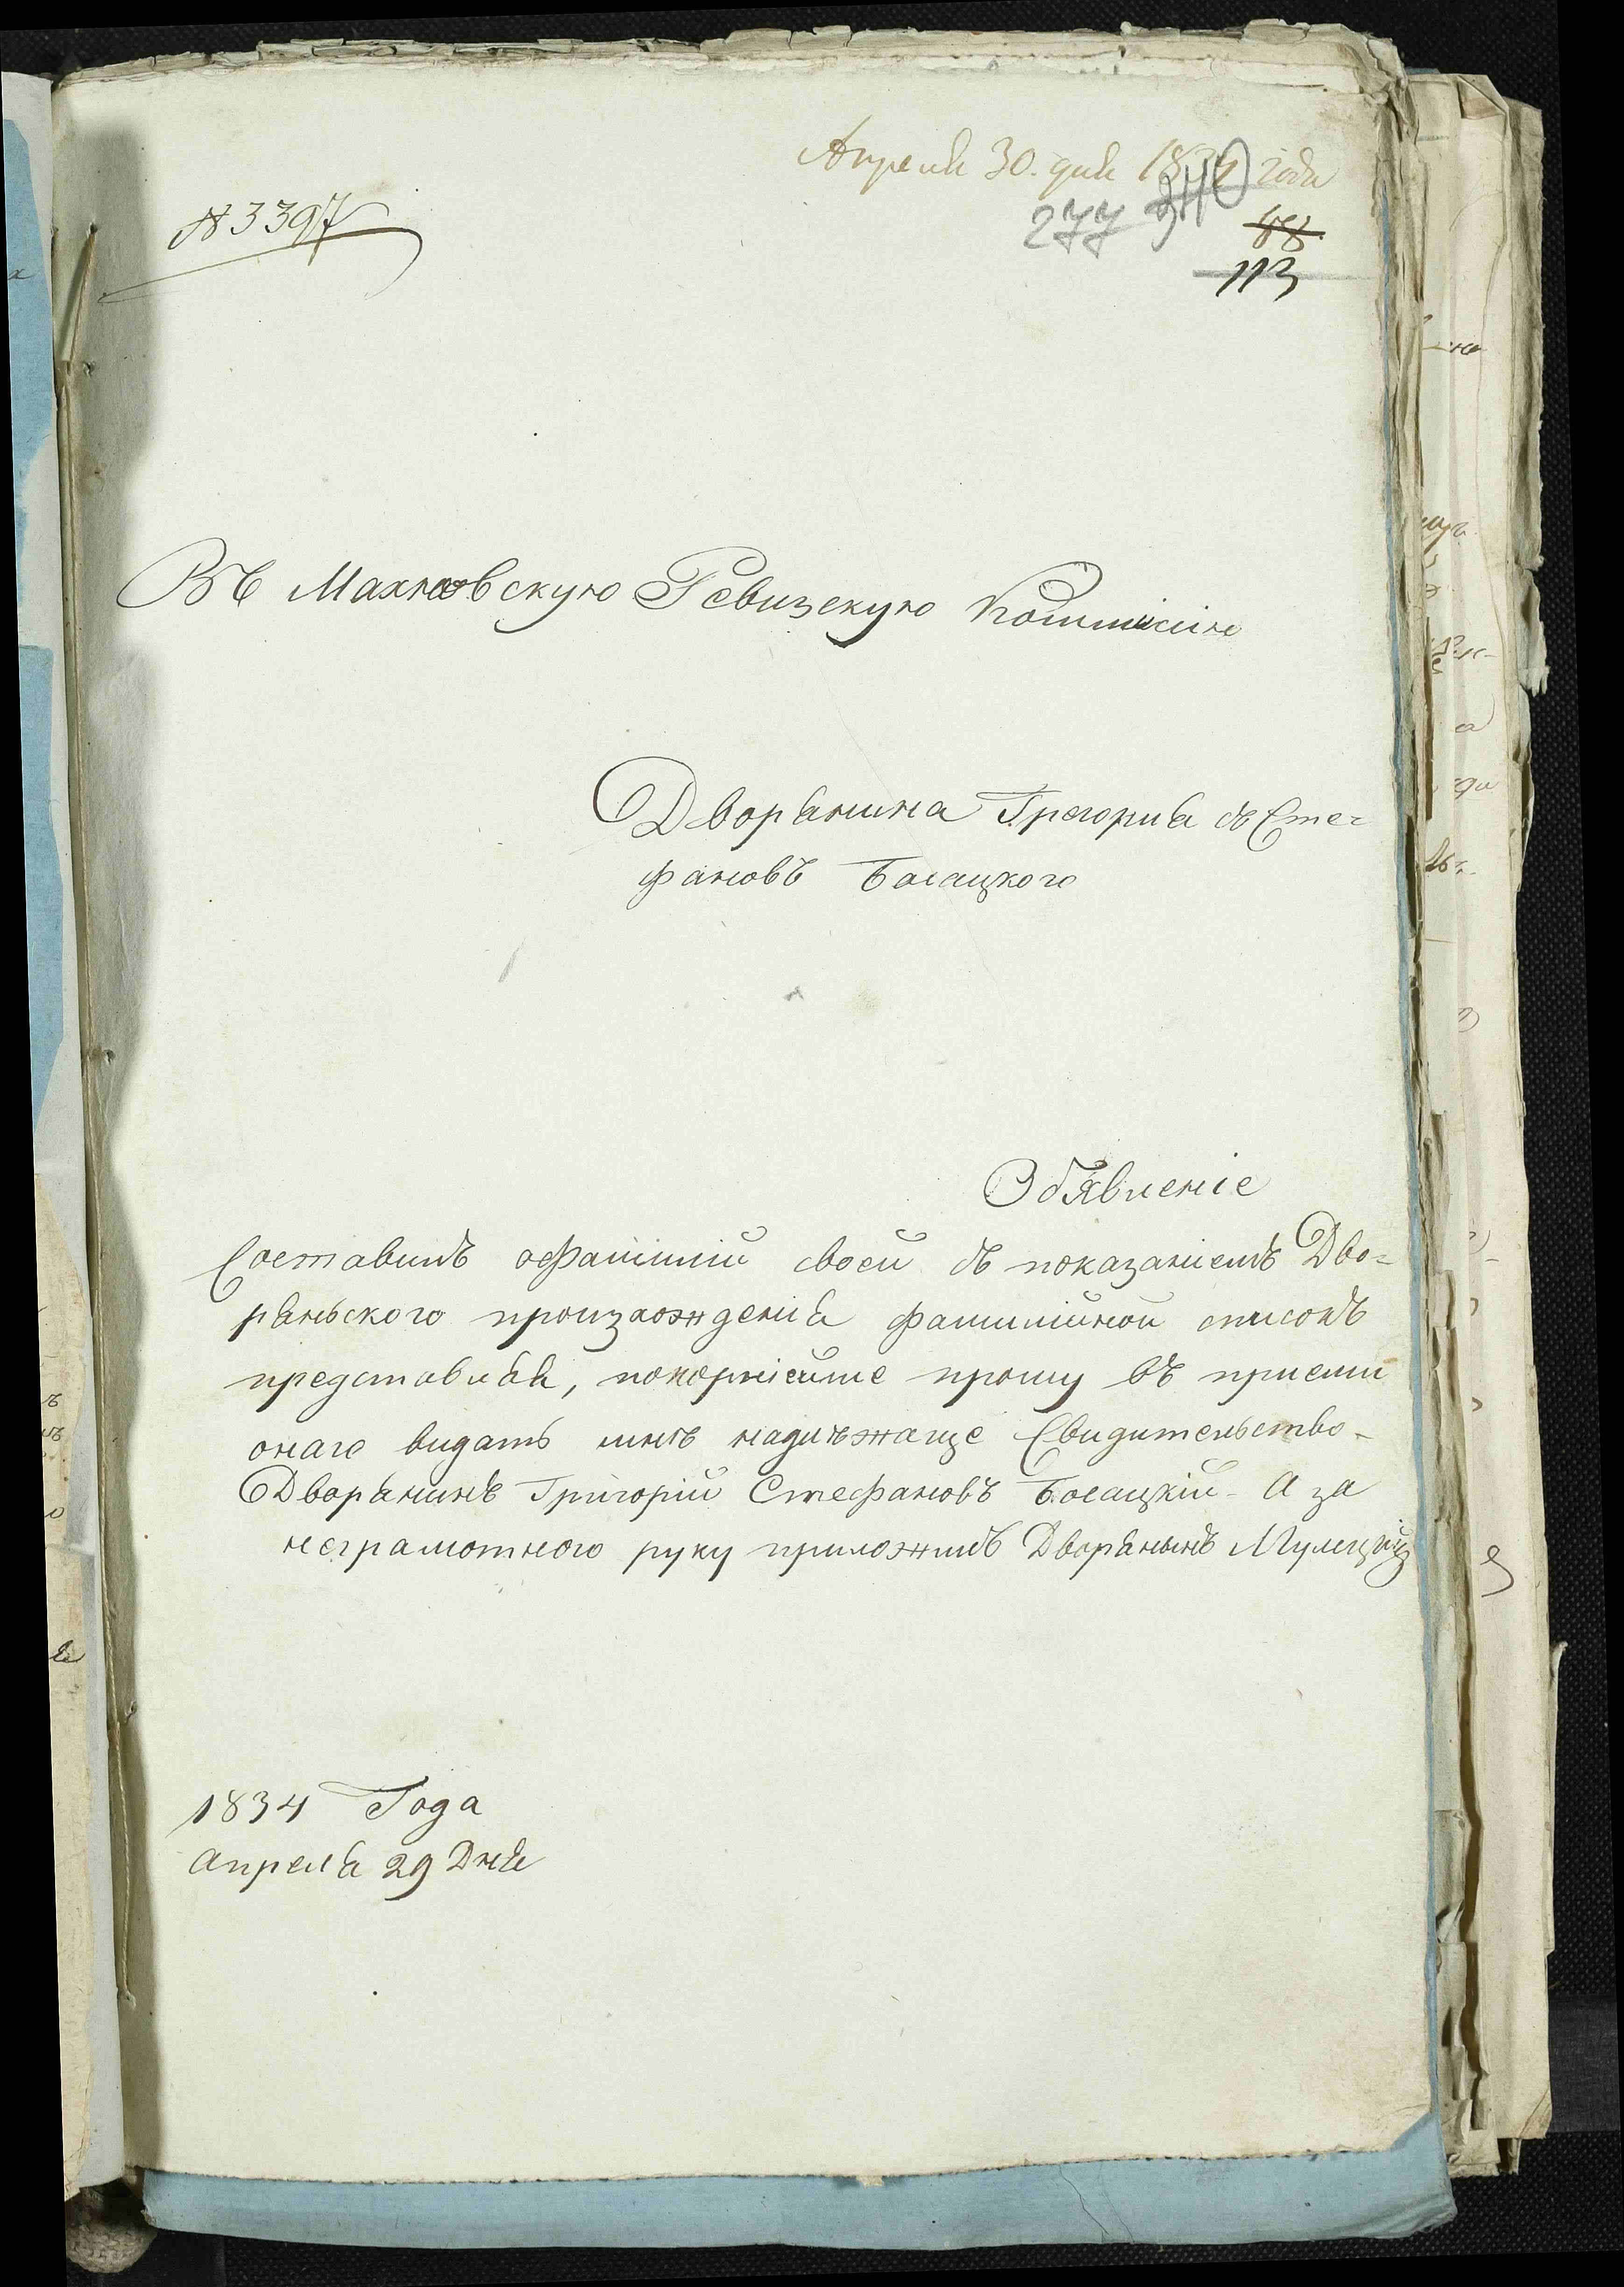 Апреля 30. дня 1834 года
№ 3397
277
88
113
Въ Махновскую Ревизскую Коммисию
Дворянина Грегория съ Сте=
фановъ Босацкого
Обявленіе
Составивъ офамиліи своей съ показаніемъ Дво=
раньского произхожденія фамилійной списокъ
представляя, покорнѣйше прошу въ приеми
онаго видать мнѣ надлѣжаще Свидительство-
Дворянинъ Григорій Стефановъ Босацкій - А за
неграмотного руку приложилъ Дворянынъ
1834 Года
Апреля 29 Дня